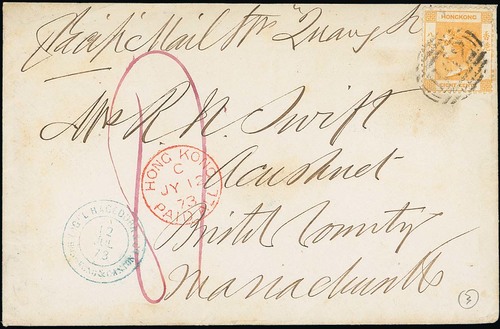 Pacific Mail Str "Quang Se
HONGKONG
Mrs R. N. Swift
Acushnet
HONG KONG
C
JY 12
73
PAID ALL
Bristol County
12
73
& CANTON
Massachusetts
3